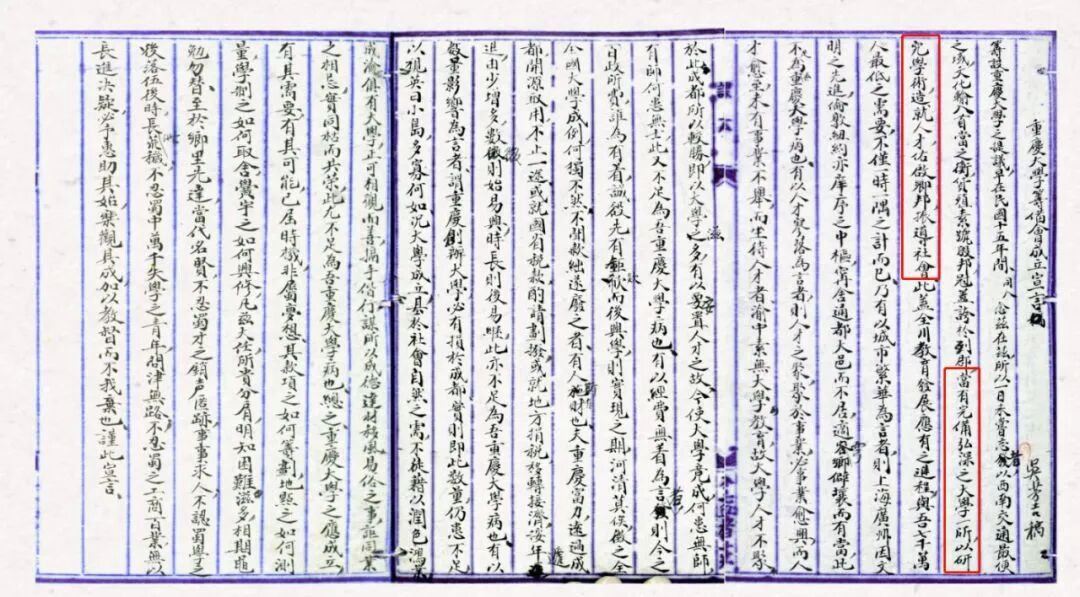 重慶大學籌備會成立宣言稿 吳芳吉稿
籌設重慶大學之促議早在民國十五年間同人念茲在茲所以一日未嘗忘者誠以西南交通最便
之域文化輸入首當之衝貨殖素號殷邦冠蓋誇於列郡當有完備弘深之大學一所以研
究學術造就人才佑啟鄉邦振導社會此蓋全川教育銓展應有之進程與吾七千萬
人最低之需要不僅一時一隅之計而已乃有以城市繁華為言者則上海廣州因文
明之先進倫敦紐約亦庠序之中樞甯舍通都大邑而不居適窮鄉僻壤而有當此
不為重慶大學病也有以人才聚落為言者則人才之聚聚於事業必事業愈興而人
才愈至未有事業不舉而坐待人才者渝中素無大學教育故大學人才不聚
於此成都所以較勝即以大學之多有以安置人才之故今使大學竟成何患無師
有師何患無士此又不足為吾重慶大學病也有以經費無著為言者則今之
百政所費誰為有著議從先有鉅款而後興學則實現之期河清莫俟徵之全
大學成例何獨不然不聞款絀遂廢之者有人斯有財也夫重慶富力遠過成
都開源取用不止一途或就國省稅款酌請劃撥或就地方捐稅移轉接濟逐年遞
進由少增多數微則始易興時長則後易賑此亦不足為吾重慶大學病也有以
設置影響為言者謂重慶創辦大學必有損於成都實則即此數量仍患不足
以視英日小島多寡何如況大學成立基於社會自然之需不徒藉以潤色鴻業
成渝俱有大學正可相觀而善攜手偕行謀所以成德達材移風易俗之事詎同業
之相忌實同枯而共榮此尤不足為吾重慶大學病也總之重慶大學之應成立
有其需要有其可能已屆時機非屬夢想其款項之如何籌劃地點之如何測
量學制之如何取舍黌宇之如何興修凡茲大任所貴分肩明知困難滋多相期黽
勉勿替至於鄉里先達當代名賢不忍蜀才之銷聲匿跡事事求人不認蜀學之
後落伍後時長蕪穢不忍蜀中萬千失學之青年問津無路不忍蜀之工商百業無以
長進決然必予惠助其始樂觀其成加以教督而不我棄也謹此宣言